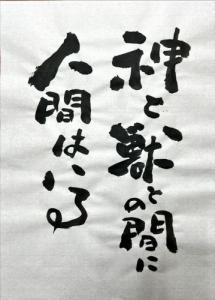 神と獣との間に
人間はいる